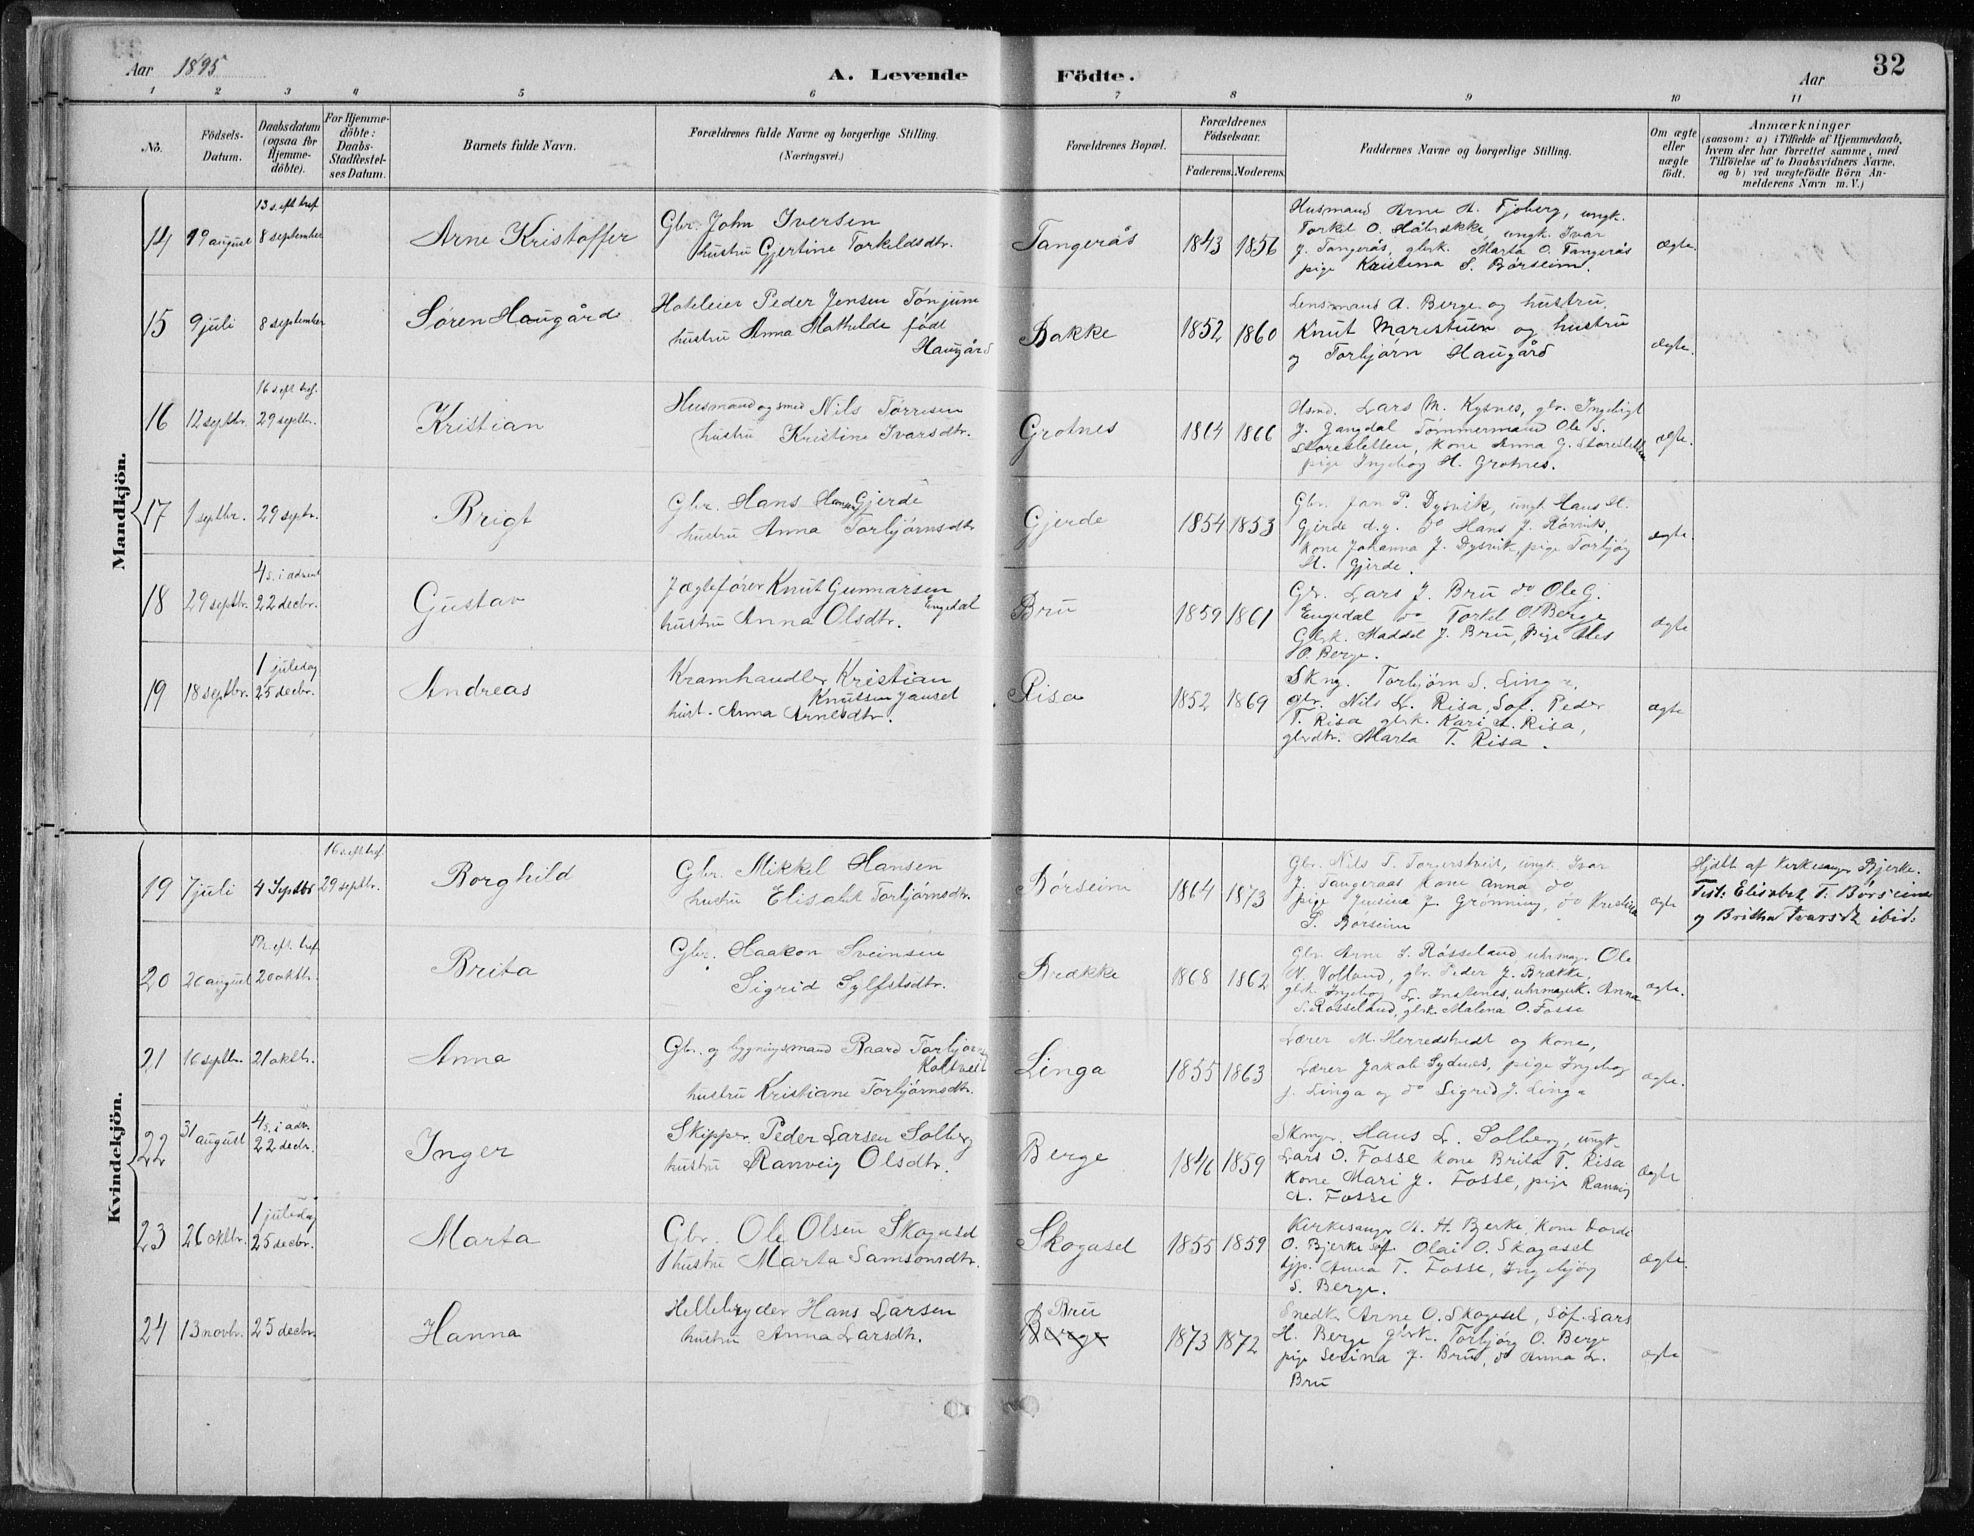 Aar 1895
A. Levende Födte.
Aar
32
1 2 3 4 5 6 7 8 9 10 11
No.
Födsels-
Datum.
Daabsdatum
(ogsaa for
Hjemme-
döbte).
For Hjemme-
döbte:
Daabs-
Stadfæstel-
ses Datum.
Barnets fulde Navn.
Forældrenes fulde Navne og borgerlige Stilling.
(Næringsvei.)
Forældrenes Bopæl.
Forældrenes
Födselsaar.
Faderens. Moderens.
Faddernes Navne og borgerlige Stilling.
Om ægte
eller
uægte
födt.
Anmærkninger
(saasom: a) i Tilfælde af Hjemmedaab,
hvem der har forrettet samme, med
Tilföielse af to Daabsvidners Navne,
og b) ved uægtefödte Börn An-
melderens Navn m. V.)
Mandkjön.
13 s. eft. tref.
14 19 august 8 september
Arne Kristoffer
Gbr. John Iversen
hustru Gjertine Torkeldsdtr.
Tangerås
1843 1856
Husmand Arne A. Fjøberg, ungk.
Torkel O. ungk. Ivar
J. Tangerås, gbrk. Marta O. Tangerås
pige Kristina S. Børseim.
ægte.
15 9 juli 8 september
Søren Haugård
Hoteleier Peder Jensen Tønjum
hustru Anna Mathilde født
Haugård
Bakke
1852 1860
Lensmand A. Berge og hustru,
Knut Maristuen og hustru
og Torbjørn Haugård
ægte.
16 s. eft. tref.
16 12 septbr. 29 septbr.
Kristian
Husmand og smed Nils Tørresen
hustru Kristine Ivarsdtr.
Grotnes
1864 1866
Hsmd. Lars M. Kysnes, gbr. Ingebrigt
J. Gangdal Tømmermand Ole S.
Storesletten, kone Anna G. Storesletten
pige Ingebog H. Grotnes.
ægte.
17 1 septbr. 29 septr.
Brigt
Gbr. Hans Hansen Gjerde
hustru Anna Torbjørnsdtr
Gjerde
1854 1853
Gbr. Jan P. Dysvik, ungk. Hans H.
Gjerde d.y. do Hans J. Rørvik,
kone Johanna J. Dysvik, pige Torbjøg
H. Gjerde.
ægte.
4 s. i advent
18 29 septbr. 22 decbr.
Gustav
Jægtefører Knut Gunnarsen
Engedal
hustru Anna Olsdtr.
Bru
1859 1861
Gbr. Lars J. Bru do Ole G.
Engedal do Torkel O. Berge
Gbrk. Maddel J. Bru, pige
O. Berge.
ægte
1 juledag
19 18 septbr. 25 decbr.
Andreas
Kramhandler Kristian
Knutsen
hust. Anna Arnesdtr.
Risa
1852 1869
Skng. Torbjørn S. Linga,
gbr. Nils L. Risa, Søf. Peder
T. Risa gbrk. Kari A. Risa,
gbrdtr. Marta T. Risa.
ægte
Kvindekjön.
16 s. eft. tref.
19 7 juli 4 Septbr 29 septbr.
Borghild
Gbr. Mikkel Hansen
hustru Elisabet Torbjørnsdtr.
Børseim
1864 1873
Gbr. Nils T. Torgerstveit, ungk. Ivar
J. Tangeraas kone Anna do
pige Jensina J. Grønning, do Kristina
S. Børseim
ægte
Hjdbt af Kirkesanger Bjerke.
Test: Elisabet T. Børseim
og Britha Ivarsdt ibid:
20 20 august 20 oktbr.
Brita
Gbr. Haakon Sveinsen
Sigrid Sylfestsdtr.
Brække
1868 1862
Gbr. Arne S. Røsseland, uhrmag. Ole
N. Volland, gbr. Peder J. Brække,
gbrk. Ingebog L. Instenes, uhrmagerk. Anna
S. Røsseland, gbrk. Malena O. Fosse
ægte.
21 16 septbr. 21 oktbr.
Anna
Gbr. og bygningsmand Baard Torbjørns.
Koltveit
hustru Kristiane Torbjørnsdtr.
Linga
1855 1863
Lærer M. Herredstvedt og kone,
Lærer Jakob Sydnes, pige Ingebog
J. Linga og do Sigrid J. Linga
ægte.
4 s. i adv.
22 31 august 22 decbr.
Inger
Skipper Peder Larsen Solberg
hustru Ranveig Olsdtr.
Berge
1846 1859
Skinger. Hans L. Solberg, ungk.
Lars O. Fosse kone Brita T. Risa
kone Mari J. Fosse, pige Ranveig
A. Fosse
ægte
1 juledag
23 26 oktbr. 25 decbr.
Marta
Gbr. Ole Olsen Skogasel
hustru Marta Samsonsdtr.
Skogasel
1855 1859
Kirkesanger A. H. Bjerke, kone Dordi
O. Bjerke Søf. Olai O. Skogasel
tjp. Anna T. Fosse, Ingebjøg
S. Berge.
ægte.
24 13 novbr. 25 decbr.
Hanna
Hellebryder Hans Larsen
hustru Anna Larsdtr.
Bru
Berge
1873 1872
Snedk. Arne O. Skogesel, Søf. Lars
H. Berge gbrk. Torbjøg O. Berge
pige Serina J. Bru, do Anna L.
Bru
ægte